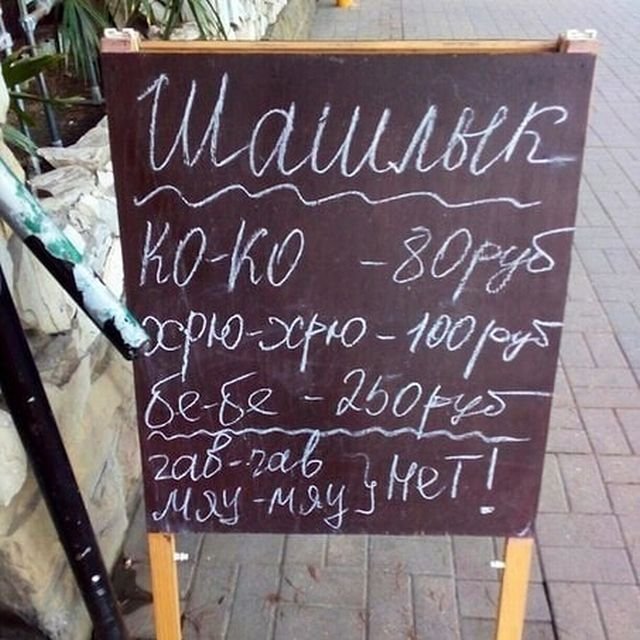 Шашлык
ко-ко - 80 руб
хрю-хрю - 100 руб
бе-бе - 250 руб
гав-гав
мяу-мяу } нет!